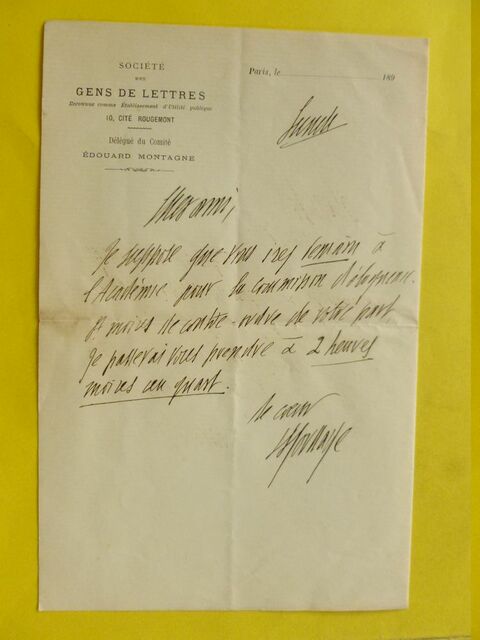 SOCIÉTÉ
DES
GENS DE LETTRES
Reconnue comme Établissement d'Utilité publique
10, CITÉ ROUGEMONT
Délégué du Comité
ÉDOUARD MONTAGNE
Paris, le 189
Lundi
Mon ami,
Je suppose que vous irez demain à
l'Académie pour la commission d'éloquence.
À moins de contre-ordre de votre part,
je passerai vous prendre à 2 heures
moins un quart.
de cœur